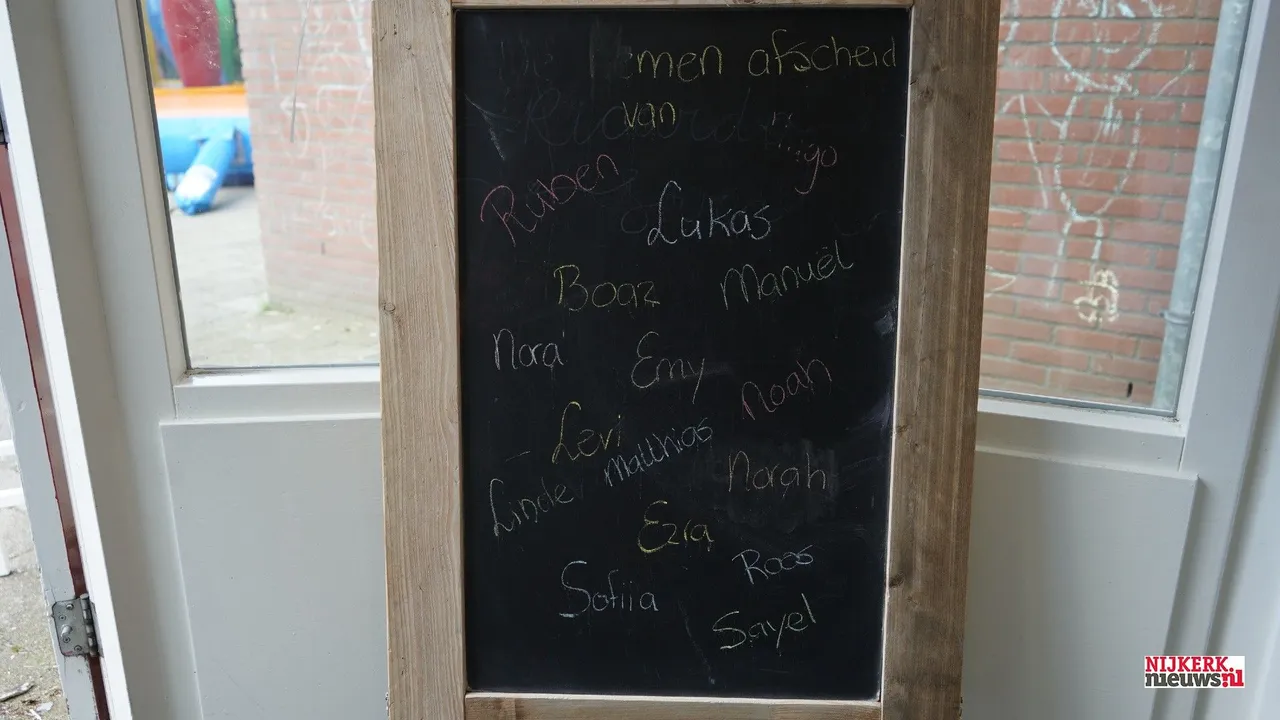 We nemen afscheid
van
Ruben
Lukas
Boaz
Manuël
Nora
Emy
Noah
Levi
Matthias
Norah
Linde
Ezra
Roos
Sofiia
Sayel
NIJKERK.
nieuws.nl